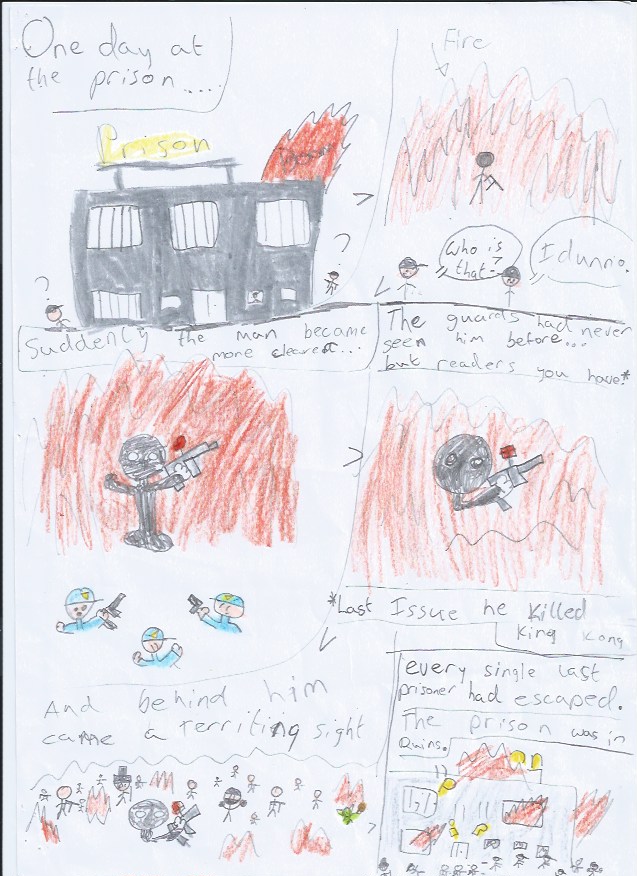 One day at
the prison....
Prison
?
?
Fire
Who is
that?
I dunno.
Suddenly the man became
more clearer...
The guards had never
seen him before...
but readers you have*
*Last Issue he killed
King Kong
And behind him
came a terrifing sight
every single last
prisoner had escaped.
The prison was in
Ruins.